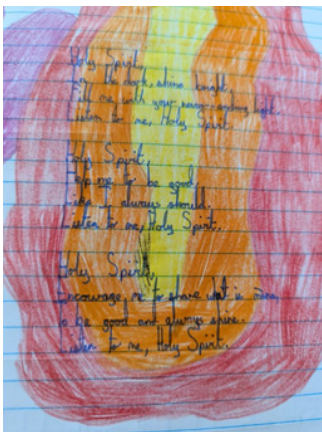 Holy Spirit,
In the dark, shine bright,
Fill me with your never-ending light.
Listen to me, Holy Spirit.
Holy Spirit,
Help me to be good,
Like I always should.
Listen to me, Holy Spirit.
Holy Spirit,
Encourage me to share what is mine,
To be good and always shine.
Listen to me, Holy Spirit.